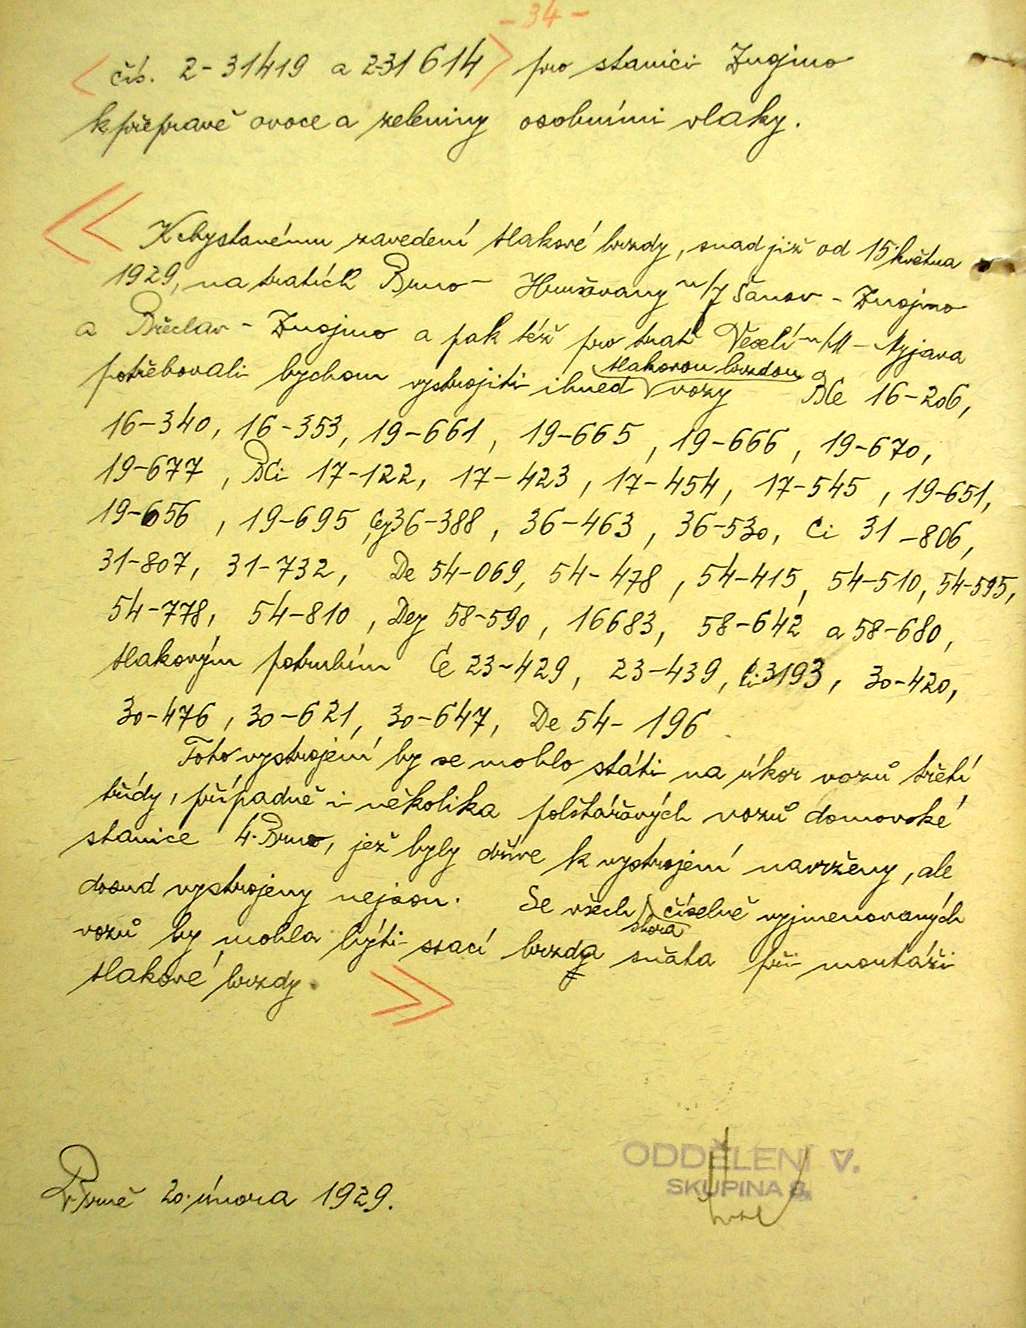 - 34 -
čís. 2-31419 a 2-31614 pro stanici Znojmo
k přepravě ovoce a zeleniny osobními vlaky.
K chystanému zavedení tlakové brzdy, snad již od 15. května
1929, na tratích Brno - Hrušovany n/J Šanov - Znojmo
a Břeclav - Znojmo a pak též pro trať Veselí n/M - Myjava
potřebovali bychom vystrojiti ihned tlakovou brzdou vozy BCe 16-206,
16-340, 16-353, 19-661, 19-665, 19-666, 19-670,
19-677, BCi 17-122, 17-423, 17-454, 17-545, 19-651,
19-656, 19-695, 36-388, 36-463, 36-530, Ci 31-806,
31-807, 31-732, De 54-069, 54-478, 54-415, 54-510, 54-595,
54-778, 54-810, Dey 58-590, 16683, 58-642 a 58-680,
tlakovým potrubím Ce 23-429, 23-439, Ci 3193, 30-420,
30-476, 30-621, 30-647, De 54-196
Toto vystrojení by se mohlo státi na úkor vozů třetí
třídy, případně i několika polštářových vozů domovské
stanice h. Brno, jež byly dříve k vystrojení navrženy, ale
dosud vystrojeny nejsou. Se všech skora číselně vyjmenovaných
vozů by mohla býti ssací brzda sňata při montáži
tlakové brzdy.
V Brně 20. února 1929.
ODDĚLENÍ V.
SKUPINA